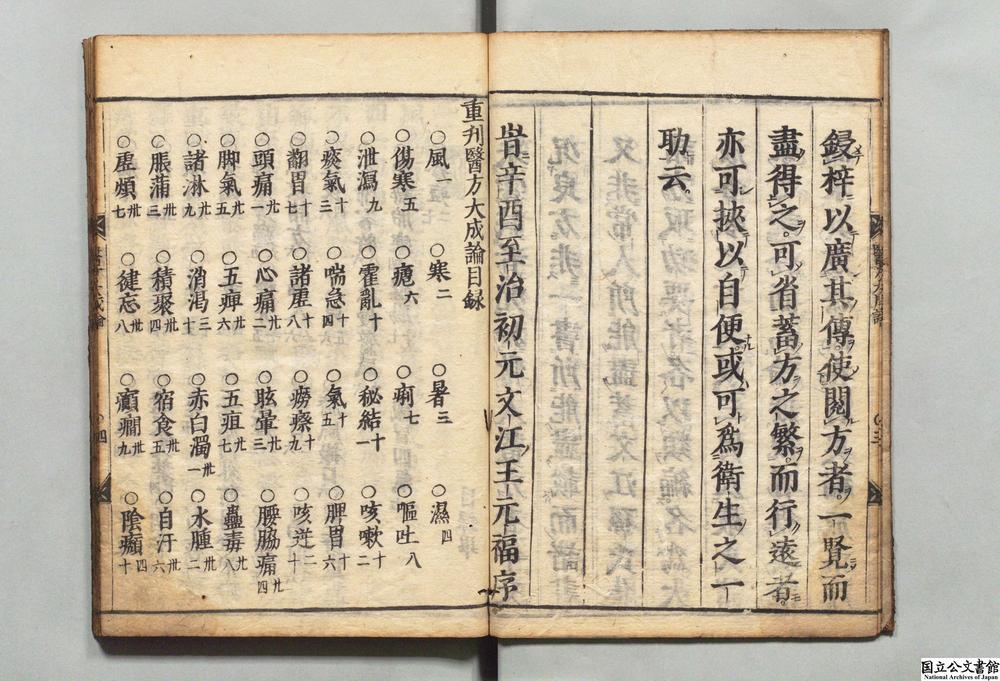 鋟梓以廣其傳使閱方者一覽而
盡得之可省蓄方之繁而行遠者
亦可挾以自便或可爲衛生之一
助云
旹辛酉至治初元文江王元福序
重刋醫方大成論目録
○風一 ○寒二 ○暑三 ○濕四
○傷寒五 ○瘧六 ○痢七 ○嘔吐八
○泄瀉九 ○霍亂十 ○秘結十一 ○咳嗽十二
○痰氣十三 ○喘急十四 ○氣十五 ○脾胃十六
○翻胃十七 ○諸虛十八 ○癆瘵十九 ○咳逆二十
○頭痛卅一 ○心痛卅二 ○眩暈卅三 ○腰脇痛卅四
○脚氣卅五 ○五痺卅六 ○五疸卅七 ○蠱毒卅八
○諸淋卅九 ○消渴三十 ○赤白濁卅一 ○水腫卅二
○脹滿卅三 ○積聚卅四 ○宿食卅五 ○自汗卅六
○虛煩卅七 ○健忘卅八 ○癲癇卅九 ○陰㿗四十
国立公文書館
National Archives of Japan